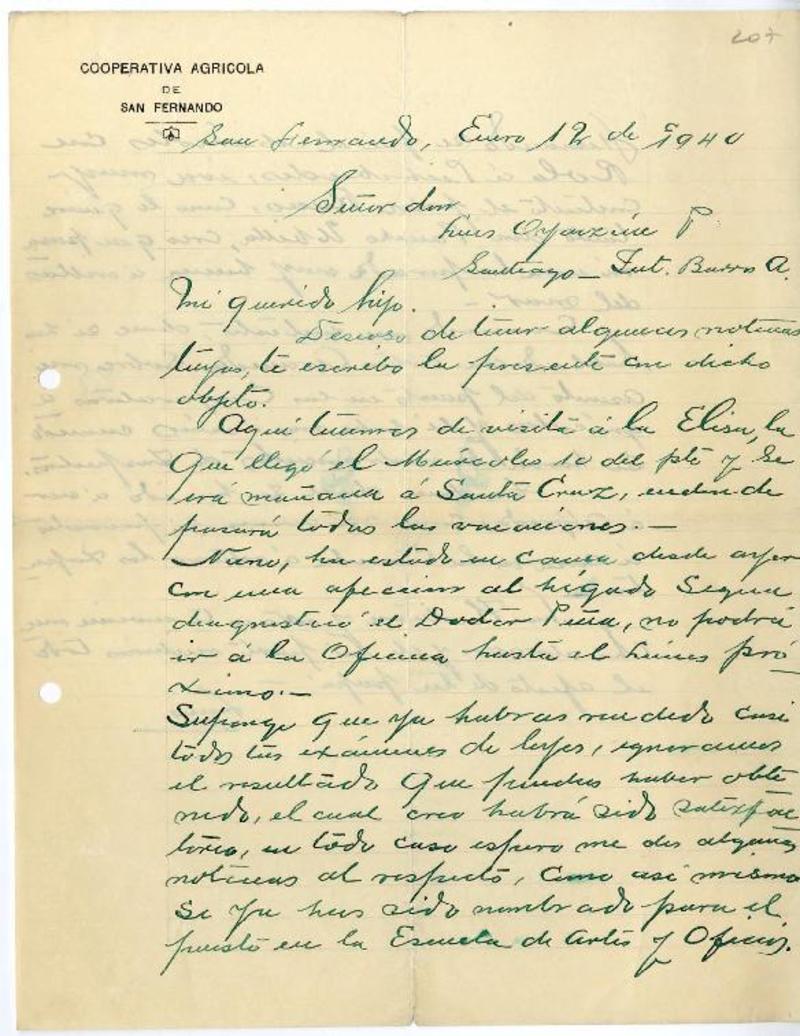 207
COOPERATIVA AGRICOLA
DE
SAN FERNANDO
San Fernando, Enero 12 de 1940
Señor don
Luis Oyarzún P
Santiago — Int. Barros A.
Mi querido hijo.
Deseoso de tener algunas noticias
tuyas, te escribo la presente con dicho
objeto.
Aquí tenemos de visita á la Elisa, la
que llegó el Miércoles 10 del pte y se
irá mañana á Santa Cruz, en donde
pasará todas las vacaciones. —
Nano, ha estado en cama desde ayer
con una afeccion al hígado segun
diagnosticó el Doctor Piña, no podrá
ir á la Oficina hasta el Lunes pró
ximo. —
Supongo que ya habras rendido casi
todos tus exámenes de leyes, ignoramos
el resultado que puedas haber obte
nido, el cual creo habrá sido satisfac
torio, en todo caso espero me des algunas
noticias al respecto, como asi mismo
si ya has sido nombrado para el
puesto en la Escuela de Artes y Oficios.